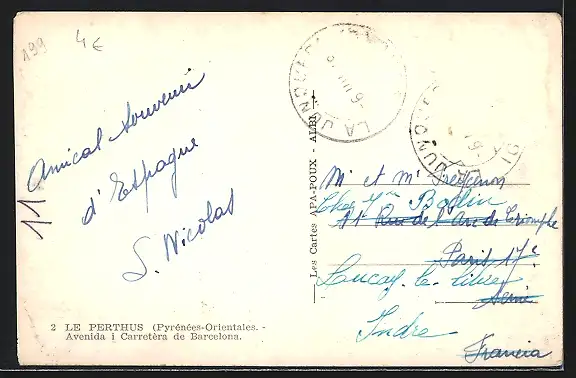 199
4€
Amical souvenir
d'Espagne
S. Nicolas
11
2 LE PERTHUS (Pyrénées-Orientales. -
Avenida i Carretèra de Barcelona.
Les Cartes APA-POUX - ALBI
LA JUNQUERA
Mr et Me
Chez Mn Bodin
11 Rue de l'Arc de Triomphe
Paris 17e
Luçay-le-libre
Seine
Indre
Francia